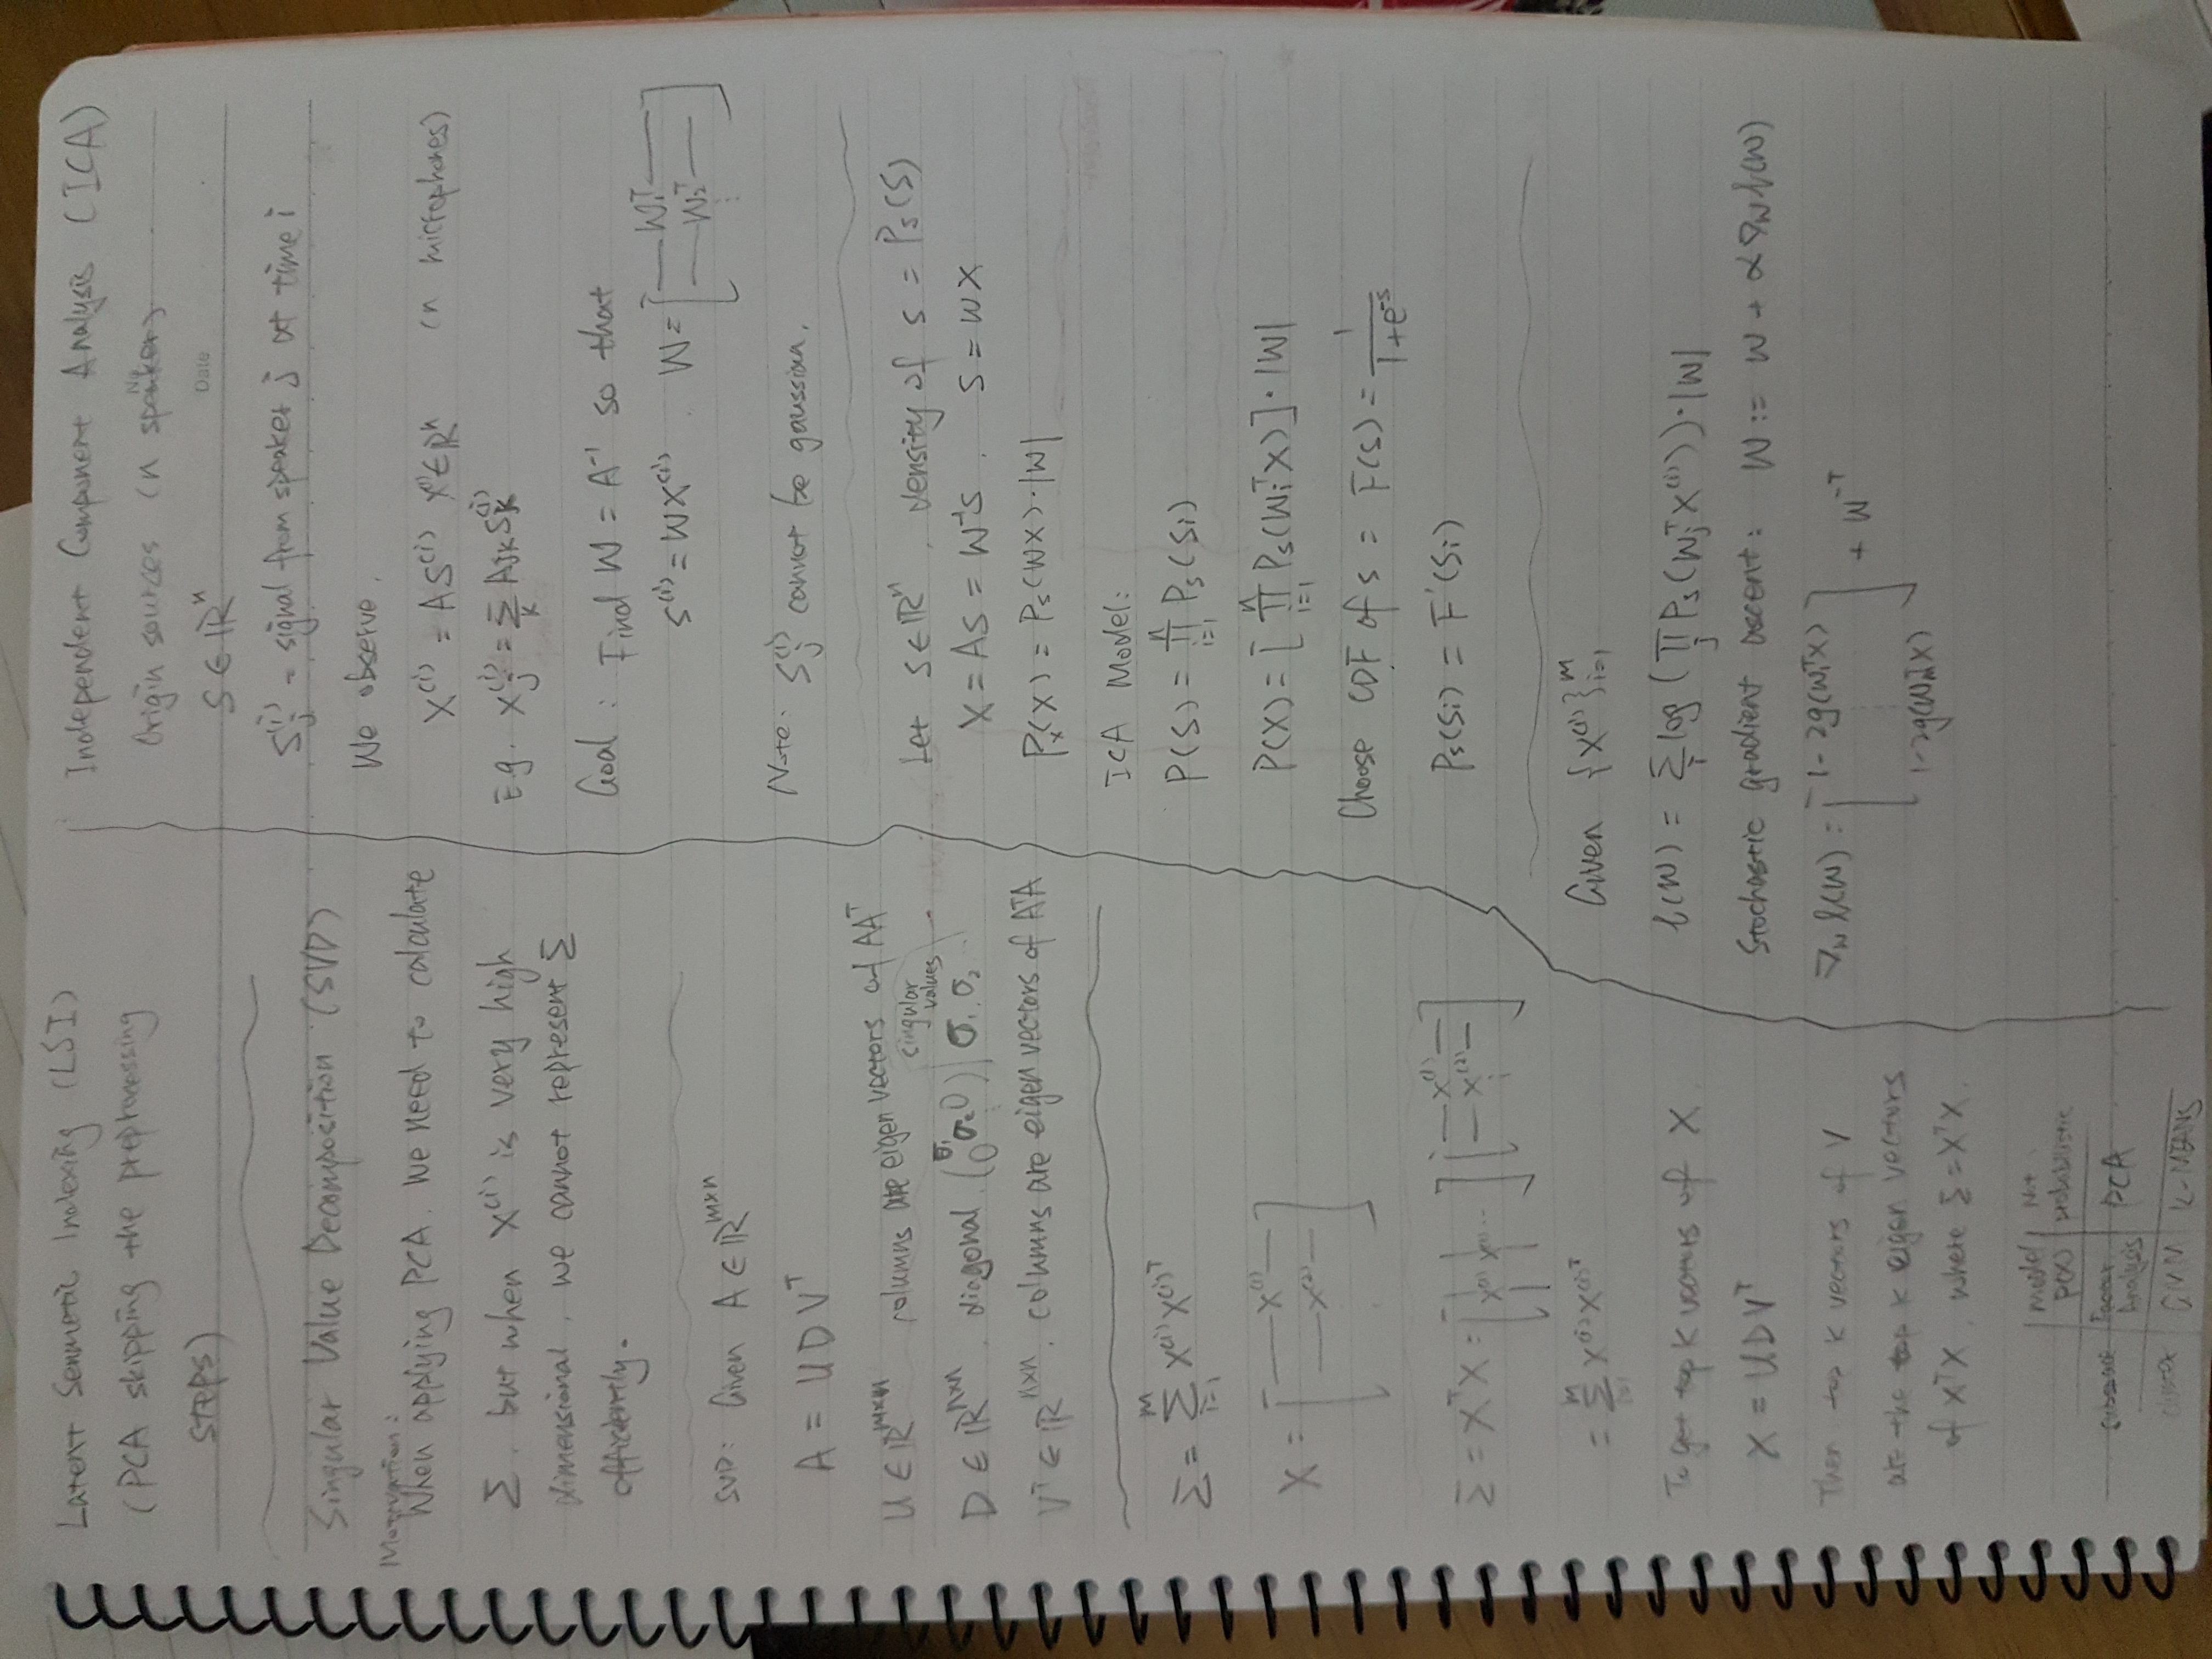 Latent Senmetic Indexing (LSI)
(PCA skipping the preprocessing
steps)
Singular Value Decomposition (SVD)
Motivation:
When applying PCA. We need to calculate
Σ. but when X⁽ⁱ⁾ is very high
dimensional, we cannot represent Σ
efficiently.
SVD: Given A ∈ ℝᵐˣⁿ
A = UDVᵀ
U ∈ ℝᵐˣⁿ columns are eigen vectors of AAᵀ
singular values
D ∈ ℝⁿˣⁿ. diagonal. (σ₁ σ₂ 0 0) σ₁. σ₂
Vᵀ ∈ ℝⁿˣⁿ. columns are eigen vectors of AᵀA
Σ = Σᵢ₌₁ᵐ X⁽ⁱ⁾X⁽ⁱ⁾ᵀ
X = [ — X⁽¹⁾ —
— X⁽²⁾ — ]
Σ = XᵀX = [ X⁽¹⁾ X⁽²⁾ ... ] [ — X⁽¹⁾ —
— X⁽²⁾ — ]
= Σᵢ₌₁ᵐ X⁽ⁱ⁾X⁽ⁱ⁾ᵀ
To get top K vectors of X.
X = UDVᵀ
Then top K vectors of V
are the top K eigen vectors
of XᵀX, where Σ = XᵀX.
model P(x) | Not probabilistic
subspace | Factor Analysis | PCA
cluster | GMM | K-MEANS
Independent Component Analysis (ICA)
No.
Origin sources (n speaker)
Date
S ∈ ℝⁿ
Sⱼ⁽ⁱ⁾ = signal from speaker j at time i
We observe.
X⁽ⁱ⁾ = AS⁽ⁱ⁾ X⁽ⁱ⁾ ∈ ℝⁿ (n microphones)
E.g. Xⱼ⁽ⁱ⁾ = Σₖ AⱼₖSₖ⁽ⁱ⁾
Goal: Find W = A⁻¹ so that
S⁽ⁱ⁾ = WX⁽ⁱ⁾. W = [ — W₁ᵀ —
— W₂ᵀ —
⋮ ]
Note: Sⱼ⁽ⁱ⁾ cannot be gaussian.
Let S ∈ ℝⁿ, density of s = Pₛ(S)
X = AS = W⁻¹S. S = WX
Pₓ(X) = Pₛ(WX)·|W|
ICA Model:
P(S) = ∏ᵢ₌₁ⁿ Pₛ(Sᵢ)
P(X) = [∏ᵢ₌₁ⁿ Pₛ(WᵢᵀX)]·|W|
Choose CDF of s = F(S) = 1/(1+e⁻ˢ)
Pₛ(Sᵢ) = F'(Sᵢ)
Given {X⁽ⁱ⁾}ᵢ₌₁ᵐ
ℓ(W) = Σᵢ log(∏ⱼ Pₛ(WⱼᵀX⁽ⁱ⁾))·|W|
Stochastic gradient ascent: W := W + α∇wℓ(W)
∇wℓ(W) = [ 1-2g(W₁ᵀX)
⋮
1-2g(WₘᵀX) ] + W⁻ᵀ